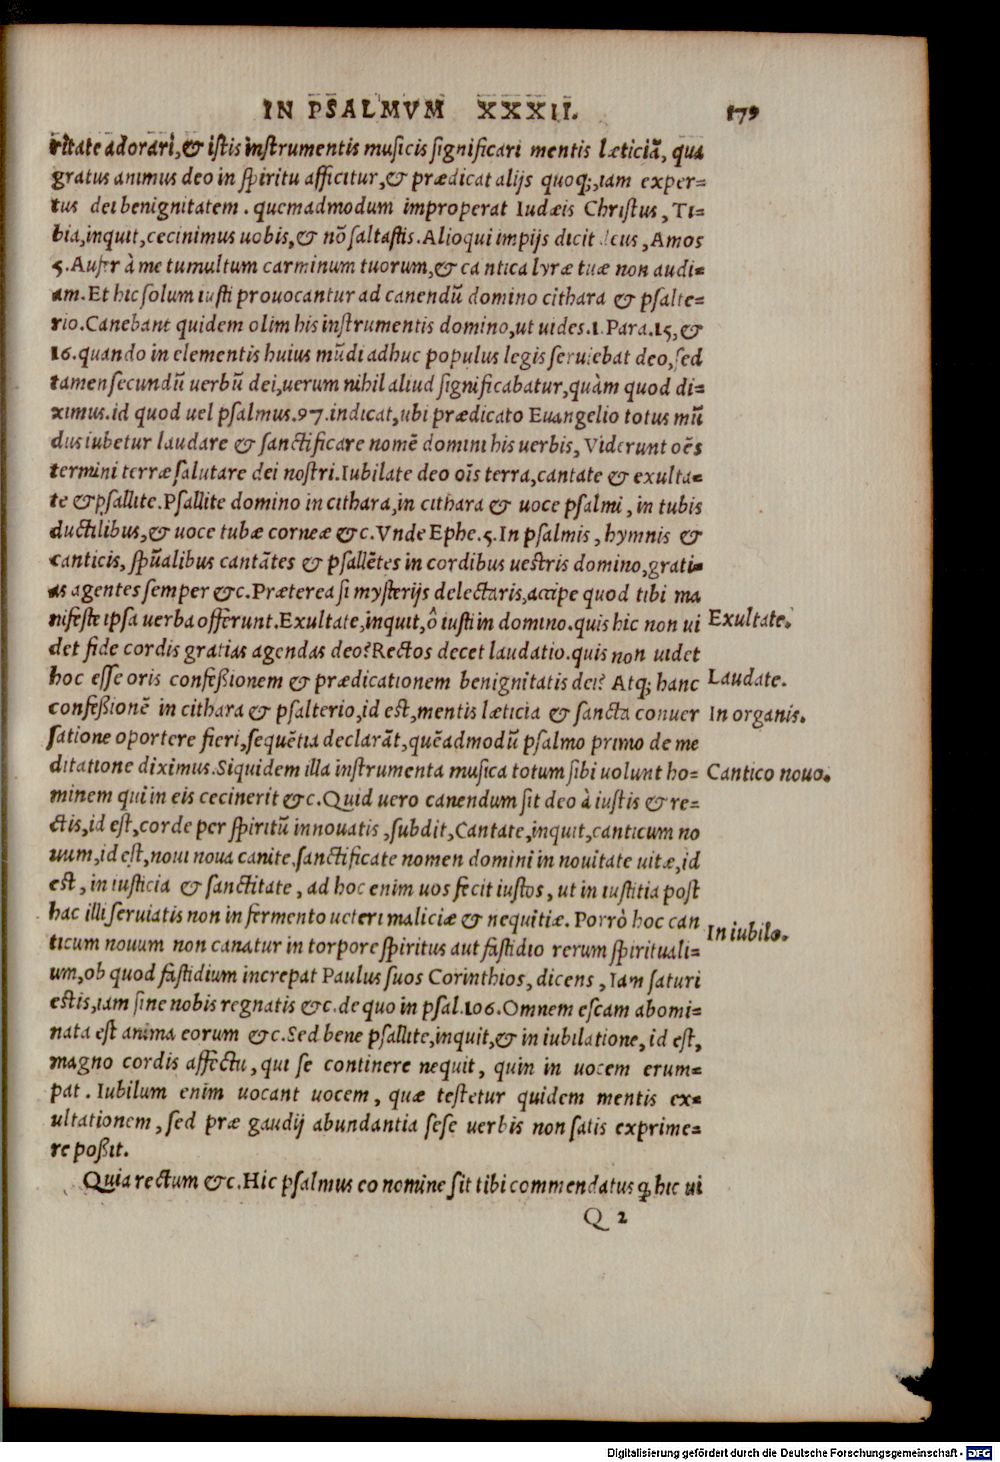 IN PSALMVM XXXII. 179
ritate adorari, & istis instrumentis musicis significari mentis læticiã, qua
gratus animus deo in spiritu afficitur, & prædicat alijs quoq;, iam exper=
tus dei benignitatem. quemadmodum improperat Iudæis Christus, Ti=
bia, inquit, cecinimus uobis, & nõ saltastis. Alioqui impijs dicit deus, Amos
5. Aufer à me tumultum carminum tuorum, & cantica lyræ tuæ non audi=
am. Et hic solum iusti prouocantur ad canendũ domino cithara & psalte=
rio. Canebant quidem olim his instrumentis domino, ut uides. 1. Para. 15, &
16. quando in elementis huius mũdi adhuc populus legis seruiebat deo, sed
tamen secundũ uerbũ dei, uerum nihil aliud significabatur, quàm quod di=
ximus. id quod uel psalmus. 97. indicat, ubi prædicato Euangelio totus mũ
dus iubetur laudare & sanctificare nomẽ domini his uerbis, Viderunt oẽs
termini terræ salutare dei nostri. Iubilate deo oĩs terra, cantate & exulta=
te & psallite. Psallite domino in cithara, in cithara & uoce psalmi, in tubis
ductilibus, & uoce tubæ corneæ &c. Vnde Ephe. 5. In psalmis, hymnis &
canticis, spũalibus cantãtes & psallẽtes in cordibus uestris domino, grati=
as agentes semper &c. Præterea si mysterijs delectaris, accipe quod tibi ma
nifeste ipsa uerba offerunt. Exultate, inquit, ô iusti in domino. quis hic non ui
Exultate.
det fide cordis gratias agendas deo? Rectos decet laudatio. quis non uidet
hoc esse oris confeßionem & prædicationem benignitatis dei? Atq; hanc
Laudate.
confeßionẽ in cithara & psalterio, id est, mentis læticia & sancta conuer
In organis.
satione oportere fieri, sequẽtia declarãt, quẽadmodũ psalmo primo de me
ditatione diximus. Siquidem illa instrumenta musica totum sibi uolunt ho=
Cantico nouo.
minem qui in eis cecinerit &c. Quid uero canendum sit deo à iustis & re=
ctis, id est, corde per spiritũ innouatis, subdit, Cantate, inquit, canticum no
uum, id est, noui noua canite, sanctificate nomen domini in nouitate uitæ, id
est, in iusticia & sanctitate, ad hoc enim uos fecit iustos, ut in iustitia post
hac illi seruiatis non in fermento ueteri maliciæ & nequitiæ. Porrò hoc can
In iubilo.
ticum nouum non canatur in torpore spiritus aut fastidio rerum spirituali=
um, ob quod fastidium increpat Paulus suos Corinthios, dicens, Iam saturi
estis, iam sine nobis regnatis &c. de quo in psal. 106. Omnem escam abomi=
nata est anima eorum &c. Sed bene psallite, inquit, & in iubilatione, id est,
magno cordis affectu, qui se continere nequit, quin in uocem erum=
pat. Iubilum enim uocant uocem, quæ testetur quidem mentis ex=
ultationem, sed præ gaudij abundantia sese uerbis non satis exprime=
re poßit.
Quia rectum &c. Hic psalmus eo nomine sit tibi commendatus ꝙ hic ui
Q 2
Digitalisierung gefördert durch die Deutsche Forschungsgemeinschaft - DFG